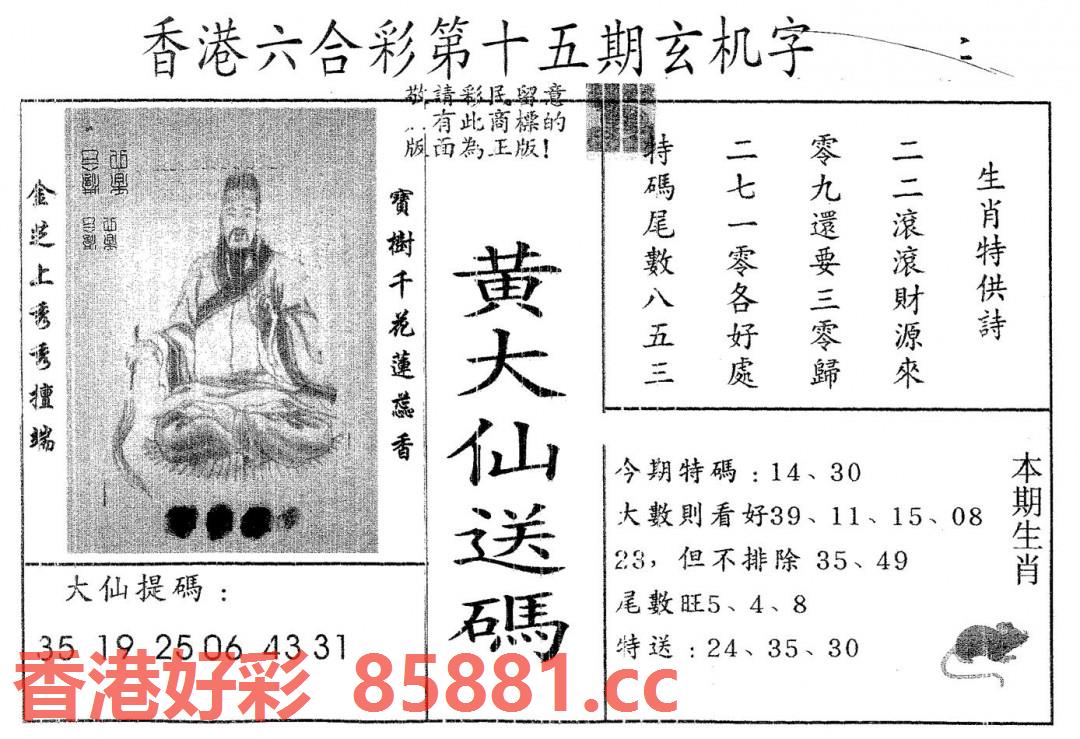 香港六合彩第十五期玄机字
敬請彩民留意
有此商標的
版面為正版!
寶樹千花蓮蕊香
金
上
擅端
黄大仙送碼
生肖特供詩
二二滾滾財源來
零九還要三零歸
二七一零各好處
特碼尾數八五三
大仙提碼：
35 19 25 06 43 31
今期特碼：14、30
大數則看好39、11、15、08
23，但不排除 35、49
尾數旺5、4、8
特送：24、35、30
本期生肖
香港好彩 85881.cc